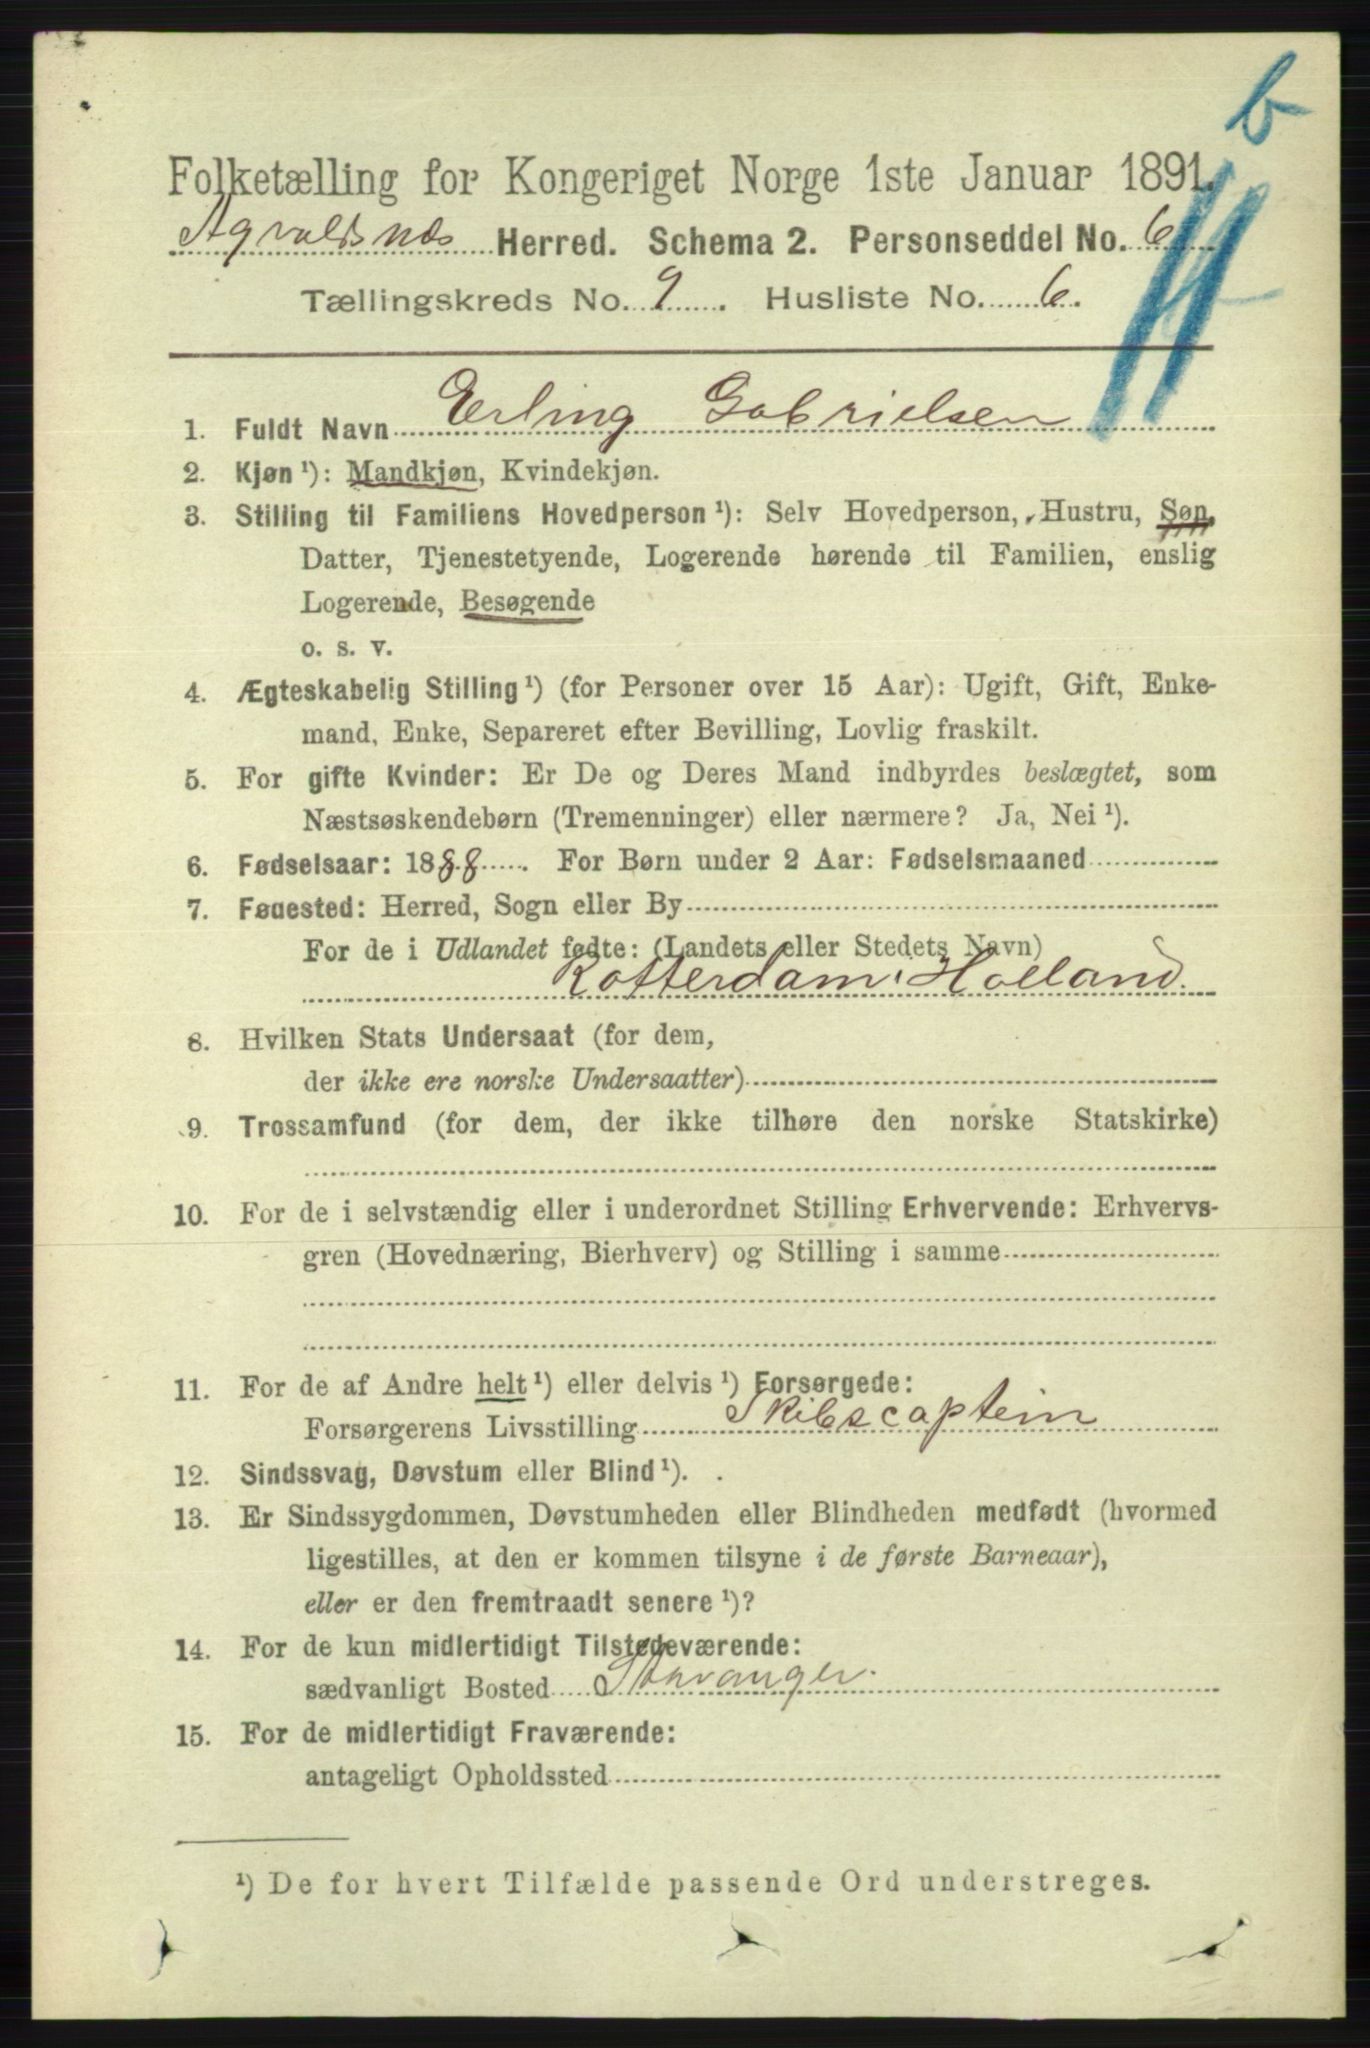 b
Folketælling for Kongeriget Norge 1ste Januar 1891.
Agvaldsnæs Herred. Schema 2. Personseddel No. 6
Tællingskreds No. 9. Husliste No. 6.
1. Fuldt Navn Erling Gabrielsen
2. Kjøn ¹): Mandkjøn, Kvindekjøn.
3. Stilling til Familiens Hovedperson ¹): Selv Hovedperson, Hustru, Søn,
Datter, Tjenestetyende, Logerende hørende til Familien, enslig
Logerende, Besøgende
o. s. v.
4. Ægteskabelig Stilling ¹) (for Personer over 15 Aar): Ugift, Gift, Enke-
mand, Enke, Separeret efter Bevilling, Lovlig fraskilt.
5. For gifte Kvinder: Er De og Deres Mand indbyrdes beslægtet, som
Næstsøskendebørn (Tremenninger) eller nærmere? Ja, Nei ¹).
6. Fødselsaar: 1888. For Børn under 2 Aar: Fødselsmaaned
7. Fødested: Herred, Sogn eller By
For de i Udlandet fødte: (Landets eller Stedets Navn)
Rotterdam i Holland.
8. Hvilken Stats Undersaat (for dem,
der ikke ere norske Undersaatter)
9. Trossamfund (for dem, der ikke tilhøre den norske Statskirke)
10. For de i selvstændig eller i underordnet Stilling Erhvervende: Erhvervs-
gren (Hovednæring, Bierhverv) og Stilling i samme
11. For de af Andre helt ¹) eller delvis ¹) Forsørgede:
Forsørgerens Livsstilling Skibscaptein
12. Sindssvag, Døvstum eller Blind ¹).
13. Er Sindssygdommen, Døvstumheden eller Blindheden medfødt (hvormed
ligestilles, at den er kommen tilsyne i de første Barneaar),
eller er den fremtraadt senere ¹)?
14. For de kun midlertidigt Tilstedeværende:
sædvanligt Bosted Stavanger.
15. For de midlertidigt Fraværende:
antageligt Opholdssted
¹) De for hvert Tilfælde passende Ord understreges.